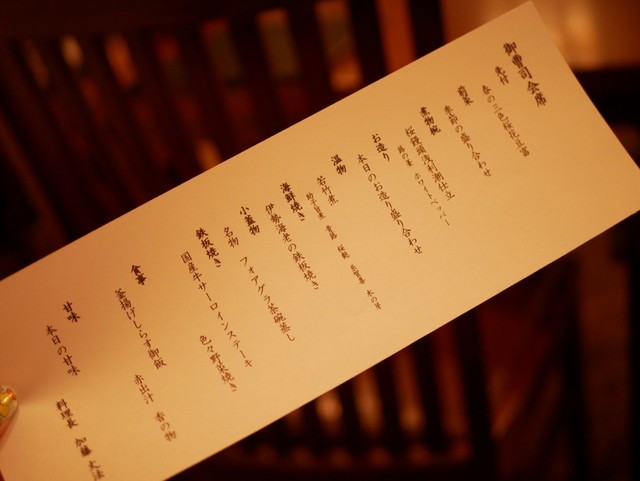 御曹司会席
先付
春の三色
前菜
季節の盛り合わせ
煮物椀
桜饅頭浅利潮仕立
ホワイトペッパー
お造り
本日のお造り盛り合わせ
温物
若竹煮
木の芽
海鮮焼き
伊勢海老の鉄板焼き
小蓋物
名物 フォアグラ茶碗蒸し
鉄板焼き
国産牛サーロインステーキ 色々野菜焼き
食事
釜揚げしらす御飯 赤出汁 香の物
甘味
本日の甘味
料理長 加藤